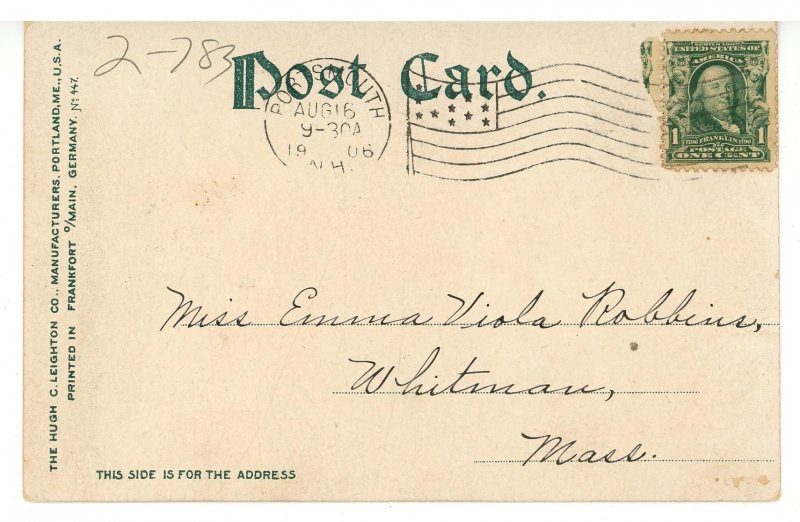 2-783
Post Card.
PORTSMOUTH
AUG 16
9-30A
1906
N.H.
SERIES 1902
UNITED STATES OF
AMERICA
1706 FRANKLIN 1790
1 POSTAGE 1
ONE CENT
THE HUGH C. LEIGHTON CO., MANUFACTURERS, PORTLAND, ME., U.S.A.
PRINTED IN FRANKFORT o/MAIN, GERMANY. No 447.
Miss Emma Viola Robbins,
Whitman,
Mass.
THIS SIDE IS FOR THE ADDRESS